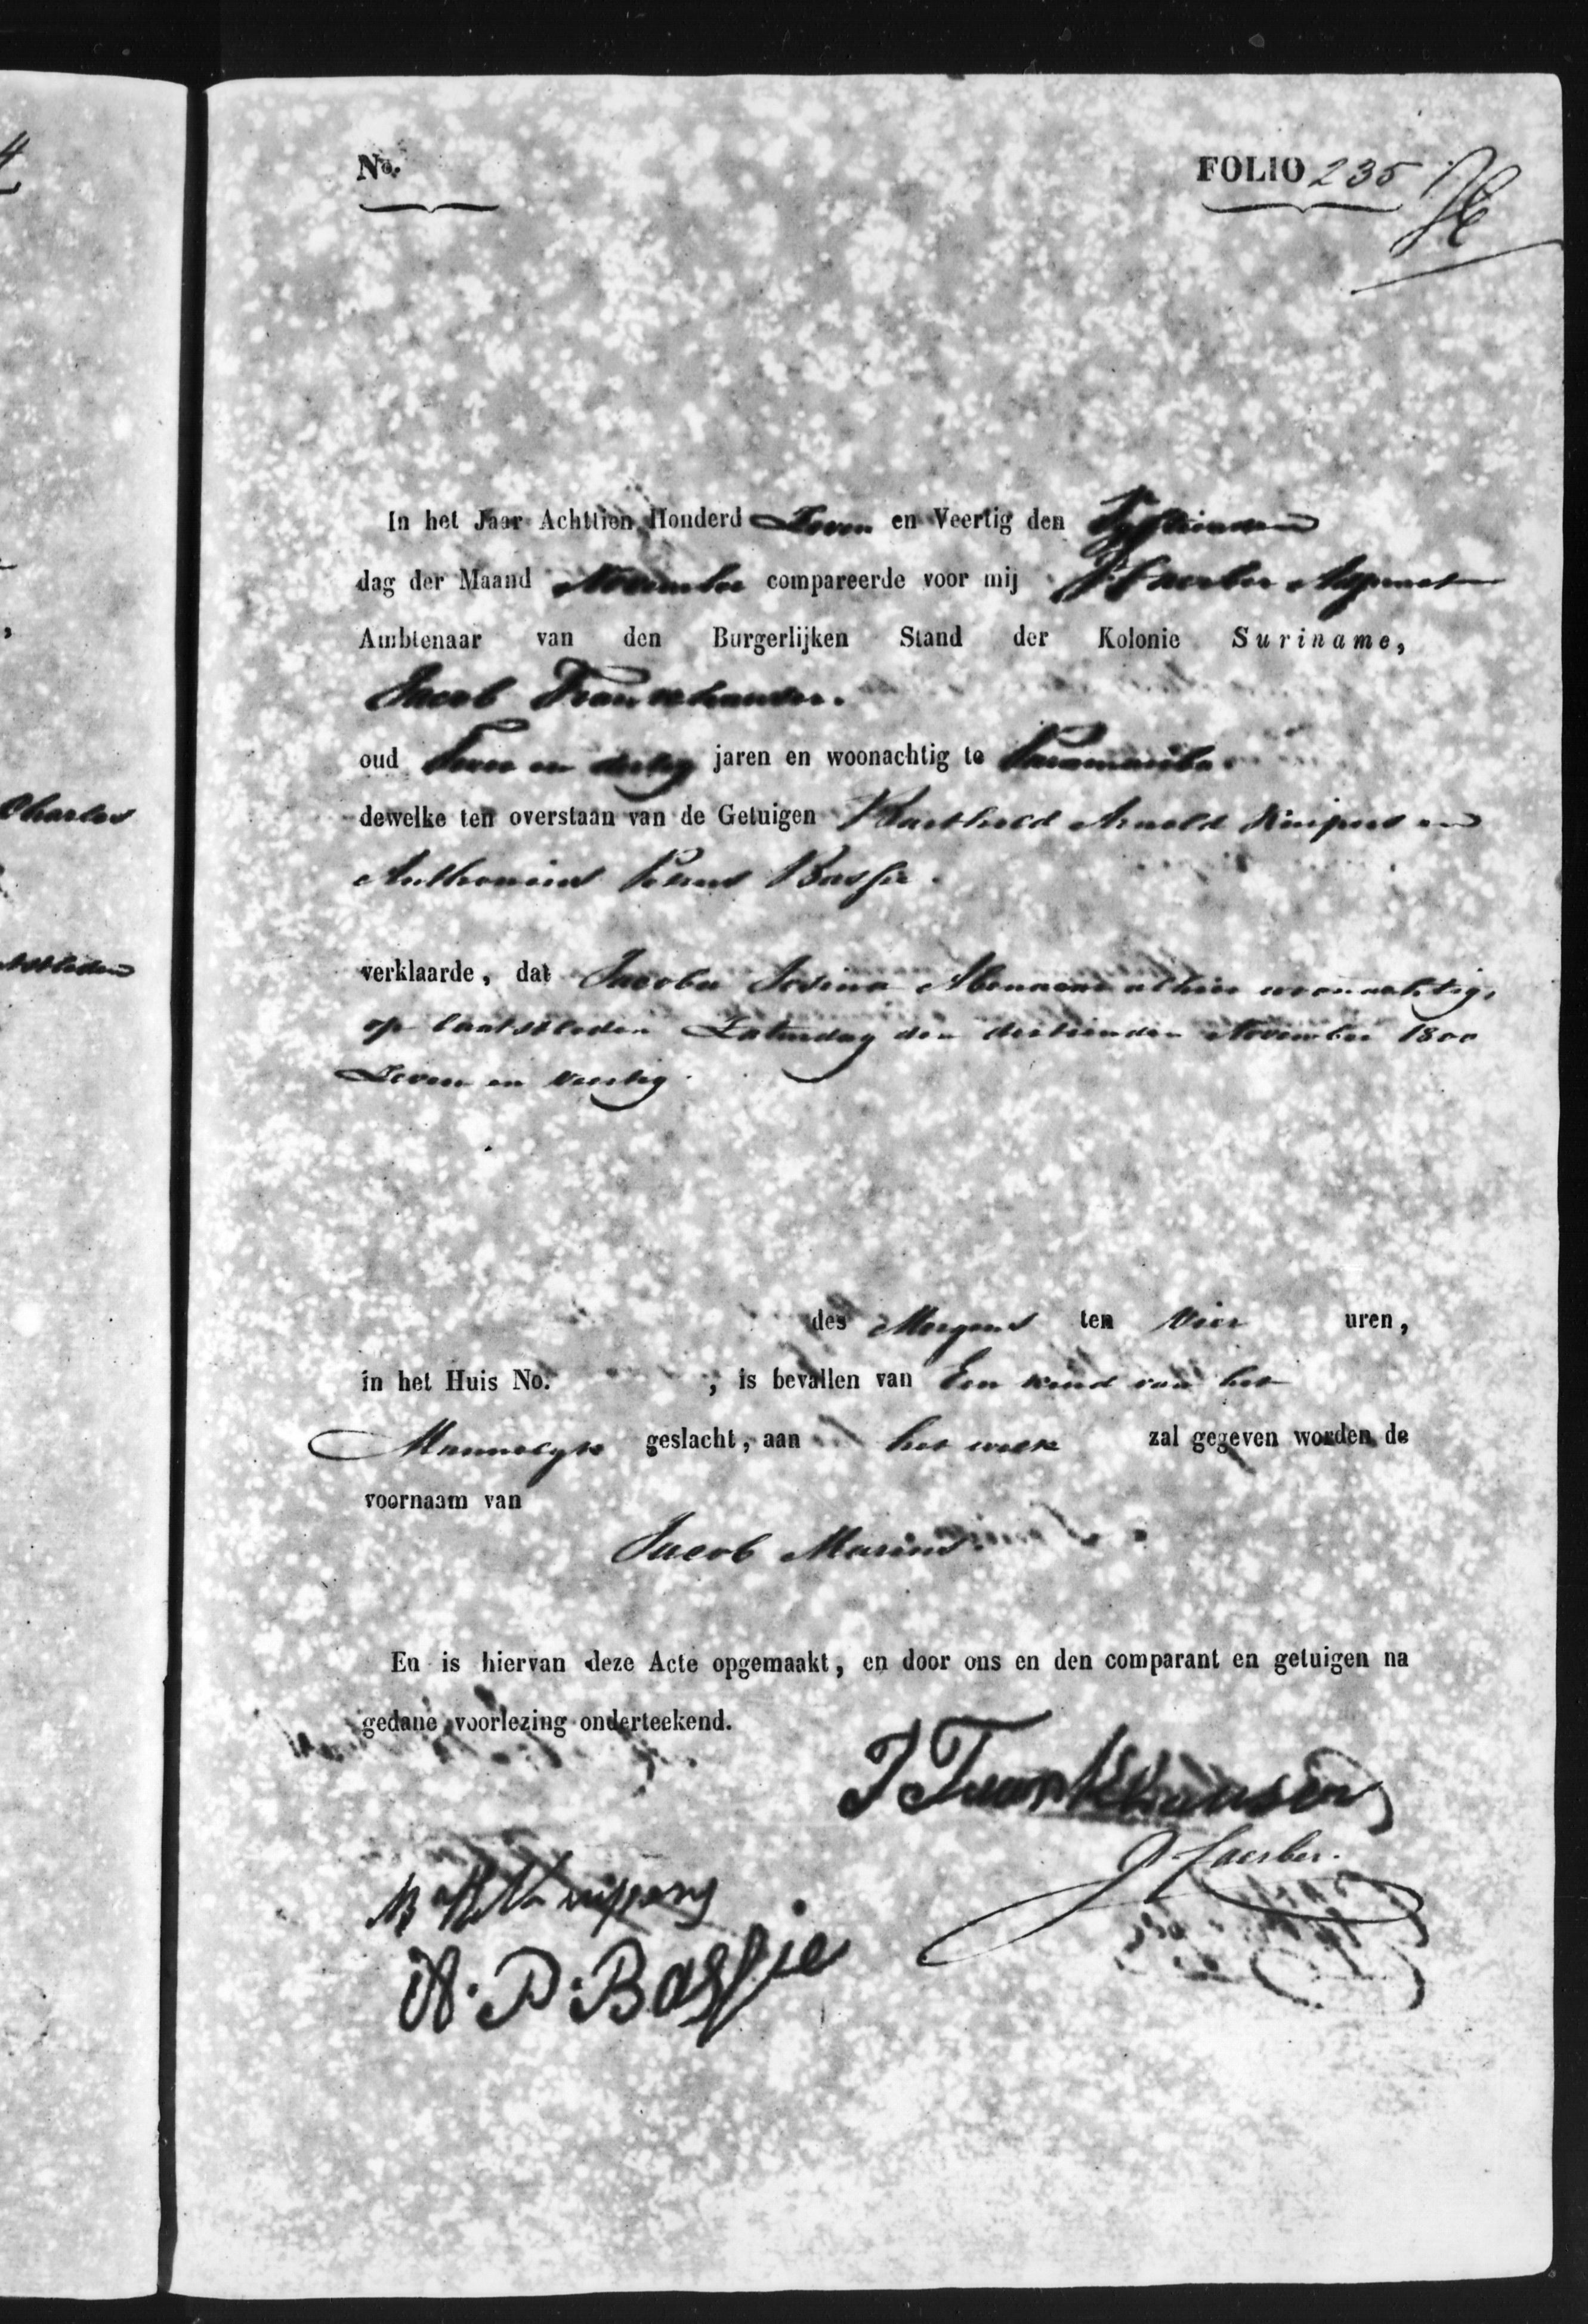 No. FOLIO 235
In het Jaar Achttien Honderd Zeven en Veertig den Vyftienden
dag der Maand November compareerde voor mij
Ambtenaar van den Burgerlijken Stand der Kolonie Suriname,
Jacob
oud en dertig jaren en woonachtig te Paramaribo.
dewelke ten overstaan van de Getuigen Barthold Arnold Kuipers en
Anthonius Petrus Bassie.
verklaarde, dat Jacoba alhier woonachtig,
op laatstleden Zaturdag den dertienden November 1800
Zeven en Veertig.
des Morgens ten Vier uren,
in het Huis No. , is bevallen van Een kind van het
Mannelyk geslacht, aan het welk zal gegeven worden de
voornaam van
Jacob Marius.
En is hiervan deze Acte opgemaakt, en door ons en den comparant en getuigen na
gedane voorlezing onderteekend.
A. P. Bassie
Charles